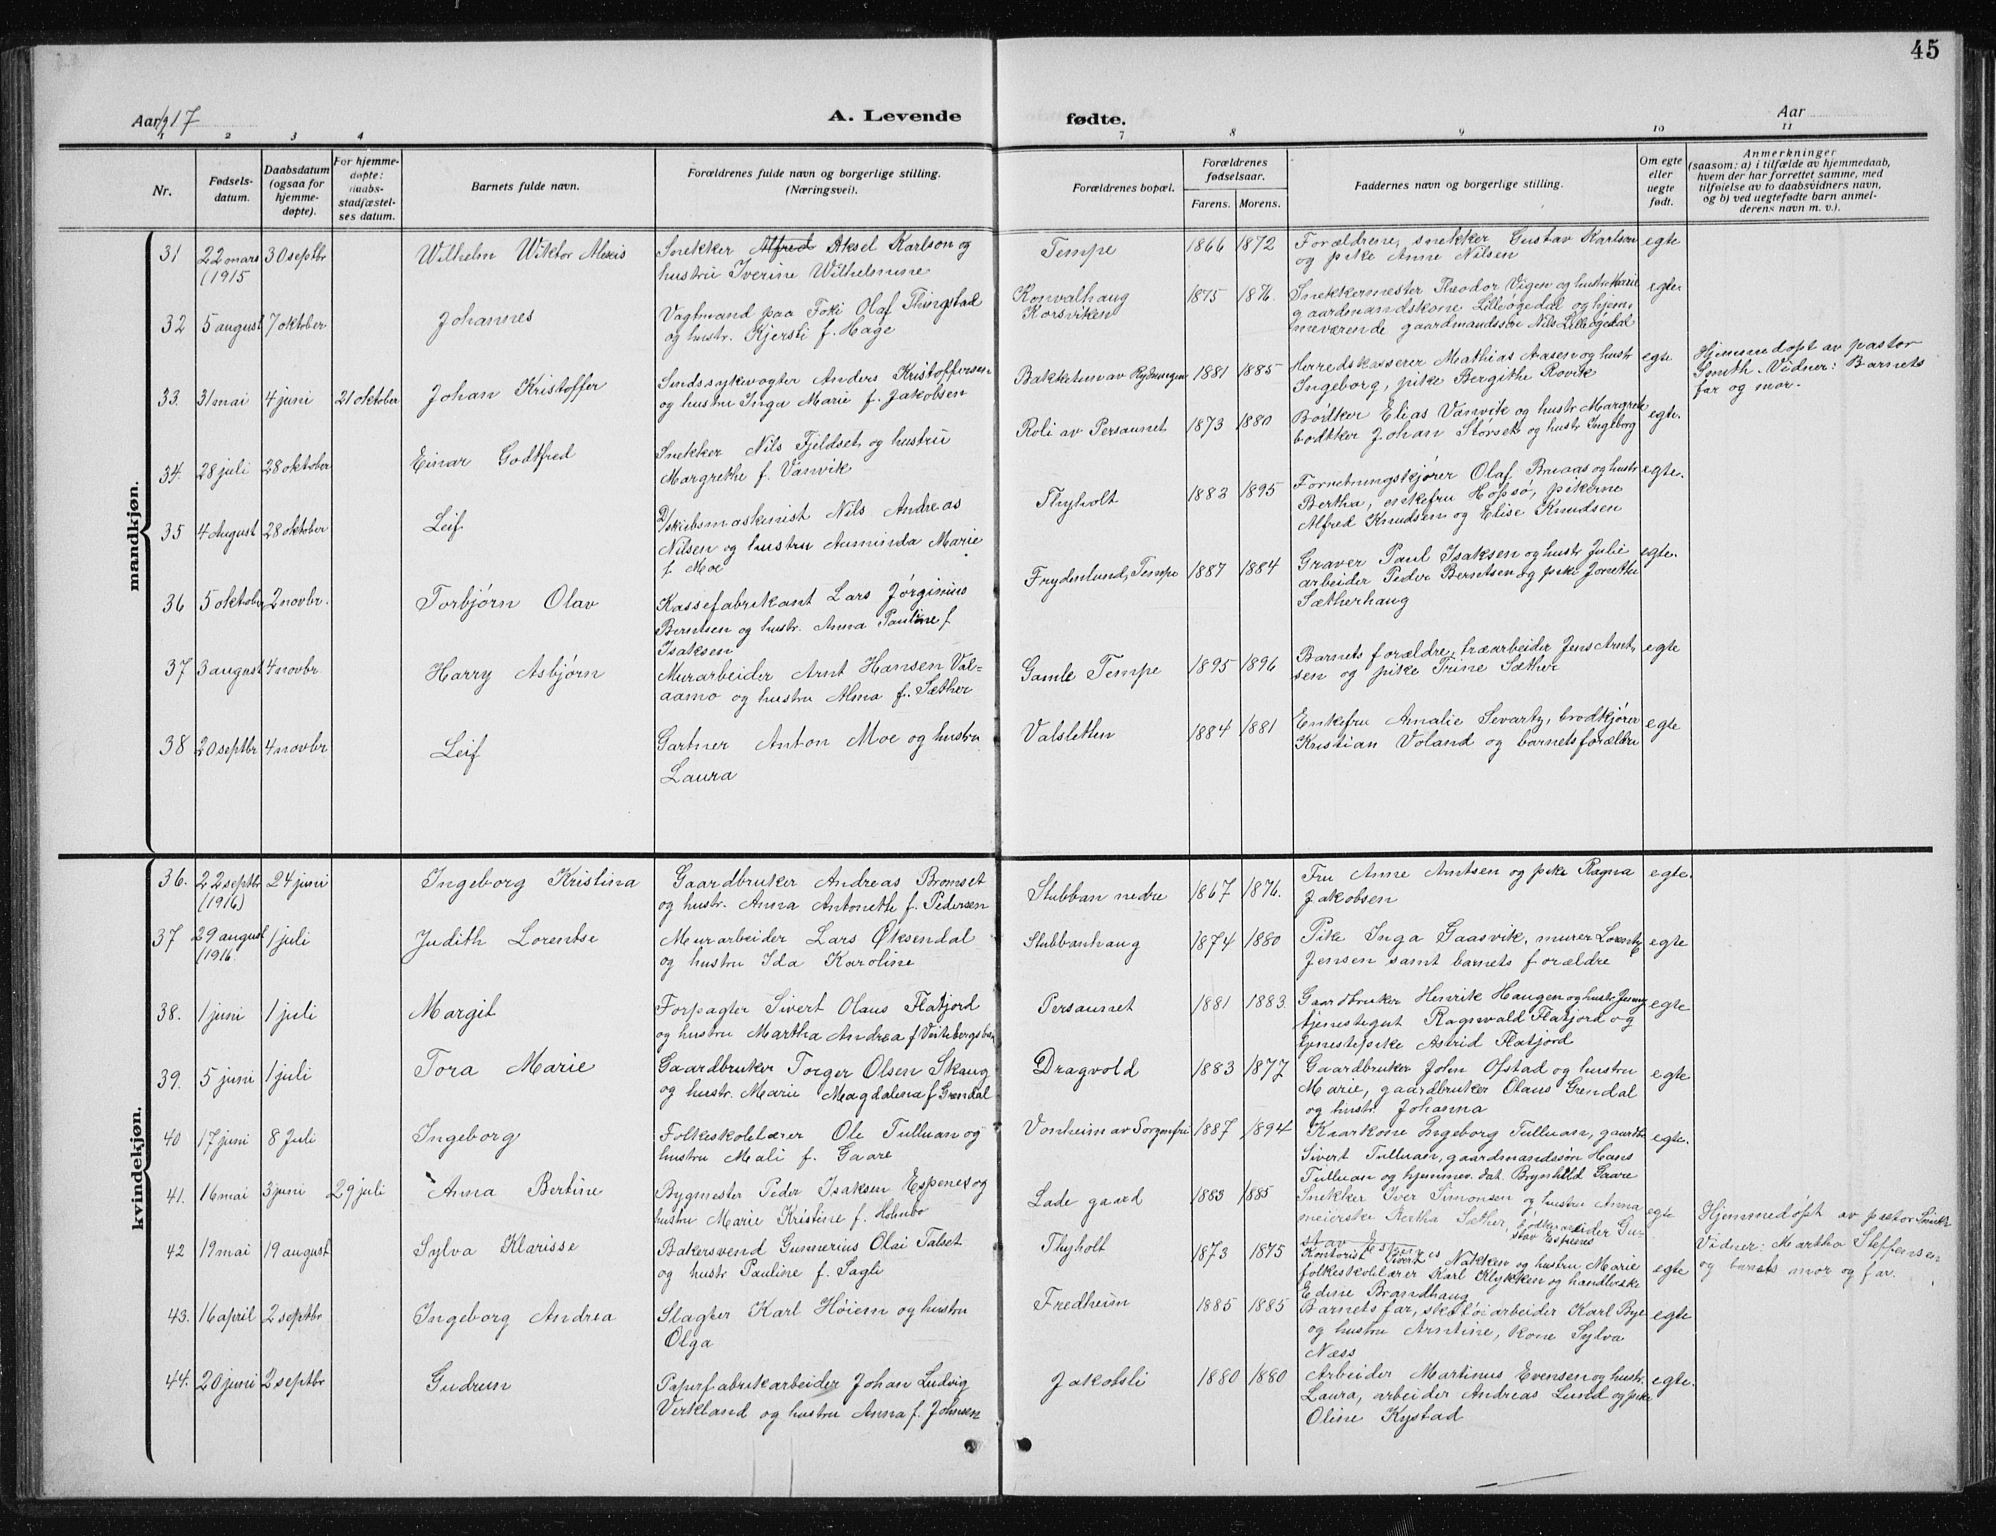 45
Aar 1917
A. Levende fødte.
Aar
1 2 3 4 7 8 9 10 11
Nr.
Fødsels-
datum.
Daabsdatum
(ogsaa for
hjemme-
døpte).
For hjemme-
døpte:
daabs-
stadfæstel-
ses datum.
Barnets fulde navn.
Forældrenes fulde navn og borgerlige stilling.
(Næringsvei).
Forældrenes bopæl.
Forældrenes
fødselsaar.
Farens. Morens.
Faddernes navn og borgerlige stilling.
Om egte
eller
uegte
født.
Anmerkninger
(saasom: a) i tilfælde av hjemmedaab,
hvem der har forrettet samme, med
tilføielse av to daabsvidners navn,
og b) ved uegtefødte barn anmel-
derens navn m. v.).
mandkjøn.
31 22 mars 30 septbr Wilhelm Wiktor Alexis Snekker Alfred Aksel Karlson og
(1915 hustru Iverine Wilhelmine
Tempe 1866 1872 Forældrene, snekker Gustav Karlson egte
og pike Anne Nilsen
32 5 august 7 oktober Johannes Vagtmand paa Foki Olaf Thingstad
og hustr. Kjersti f. Hage
Konvalhaug 1875 1876. Snekkermester Theodor Vigen og hustr Marie egte
Korsviken gaardmandskone Lilleøgedal og hjem,
meværende gaardmandssøn Nils Lilleøgedal
33. 31 mai 4 juni 21 oktober Johan Kristoffer Sindssykevogter Anders Kristoffersen
og hustru Inga Marie f. Jakobsen
Bakketun av Rydningen 1881 1885 Herredskasserer Mathias Aasen og hustr egte
Ingeborg, pike Bergithe Rovik
Hjemmedøpt av pastor
Smith. Vidner: Barnets
far og mor.
34. 28 juli 28 oktober Einar Godtfred Snekker Nils Fjeldset og hustru
Margrethe f. Vanvik
Roli av Persaunet 1873 1880 Bødker Elias Vanvik og hustr Margrete egte.
bødtker Johan Størset og hustr Ingeborg
35 4 august 28 oktober Leif D/skibsmaskinist Nils Andreas
Nilsen og hustru Aminda Marie
f. Moe
Thyholt 1883 1895 Forretningskjører Olaf Bruaas og hustr egte.
Bertha, enkefru Hopsø, pikerne
Alfred Knudsen og Elise Knudsen
36 5 oktober 2 novbr. Torbjørn Olav Kassefabrikant Lars Jørginius
Berntsen og hustr. Anna Pauline f
Isaksen
Frydenlund, Tempe 1887 1884 Graver Paul Isaksen og hustr Julie egte.
arbeider Peder Berntsen og pike Jonetha
Sætherhaug
37 3 august 4 novbr Harry Asbjørn Murarbeider Arnt Hansen Val-
aamo og hustru Alma f. Sæther
Gamle Tempe 1895 1896 Barnets forældre, træarbeider Jens Arnt, egte
sen og pike Trine Sæther
38 20 septbr 4 novbr Leif Gartner Anton Moe og hustru
Laura
Valsletten 1884 1881 Enkefru Amalie Sevarty, brødkjører egte
Kristian Voland og barnets forældre
kvindekjøn.
36. 22 septbr 24 juni Ingeborg Kristina Gaardbruker Andreas Bromset
(1916) og hustr. Anna Antonette f. Pedersen
Stubban nedre 1867 1876. Fru Anne Arntsen og pike Ragna egte.
Jakobsen
37 29 august 1 juli Judith Lorentse Murarbeider Lars Øksendal
(1916. og hustru Ida Karoline
Stubbanhaug 1874 1880 Pike Inga Gaasvik, murer Lorentz egte
Jensen samt barnets forældre
38. 1 juni 1 juli Margit Forpagter Sivert Olaus Flatjord
og hustru Martha Andrea f
Persaunet 1881 1883 Gaardbruker Henrik Haugen og hustr Jenny egte
tjenestegut Ragnvald Flatjord og
tjenestepike Astrid Flatjord
39. 5 juni 1 juli Tora Marie Gaardbruker Torger Olsen Skaug
og hustr. Marie Magdalena f Grendal
Dragvold 1883 1877 Gaardbruker John Ofstad og hustru egte
Marie, gaardbruker Olaus Grendal
og hustr. Johanna
40 17 juni 8 Juli Ingeborg Folkeskolelærer Ole Tulluan og
hustru Mali f. Gaare
Vonheim av Sorgenfri 1887 1894 Kaarkone Ingeborg Tulluan, gaardb. egte.
Sivert Tulluan, gaardmandssøn Hans
Tulluan og hjemmev. dat. Brynhild Gaare
41. 16 mai 3 juni 29 juli Anna Bertine Bygmester Peder Isaksen Espenes og
hustru Marie Kristine f. Holmbo
Lade gaard 1883 1885 Snekker Iver Simonsen og hustru Anna egte
meierske Bertha Sæther, bødkerarbeider Gu-
stav Espenes
Hjemmedøpt av pastor Smith
Vidner: Martha Steffensen
og barnets mor og far.
42 19 mai 19 august Sylva Klarisse Bakersvend Gunnerius Olai Talset
og hustr Pauline f. Sagli
Thyholt 1873 1875 Kontorist Sivert Nakken og hustru Marie egte
folkeskolelærer Karl Klykken og handlerske
Edine Brandhaug
43. 16 april 2 septbr Ingeborg Andrea Slagter Karl Høiem og hustru
Olga
Fredheim 1885 1885 Barnets far, skotøiarbeider Karl Bye egte
og hustru Arntine, kone Sylva
Næss
44. 20 juni 2 septbr Gudrun Papirfabrikarbeider Johan Ludvig
Virkland og hustru Anna f. Johnsen
Jakobsli 1880 1880 Arbeider Martinus Evensen og hustr. egte.
Laura, arbeider Andreas Lund og pike
Oline Kystad